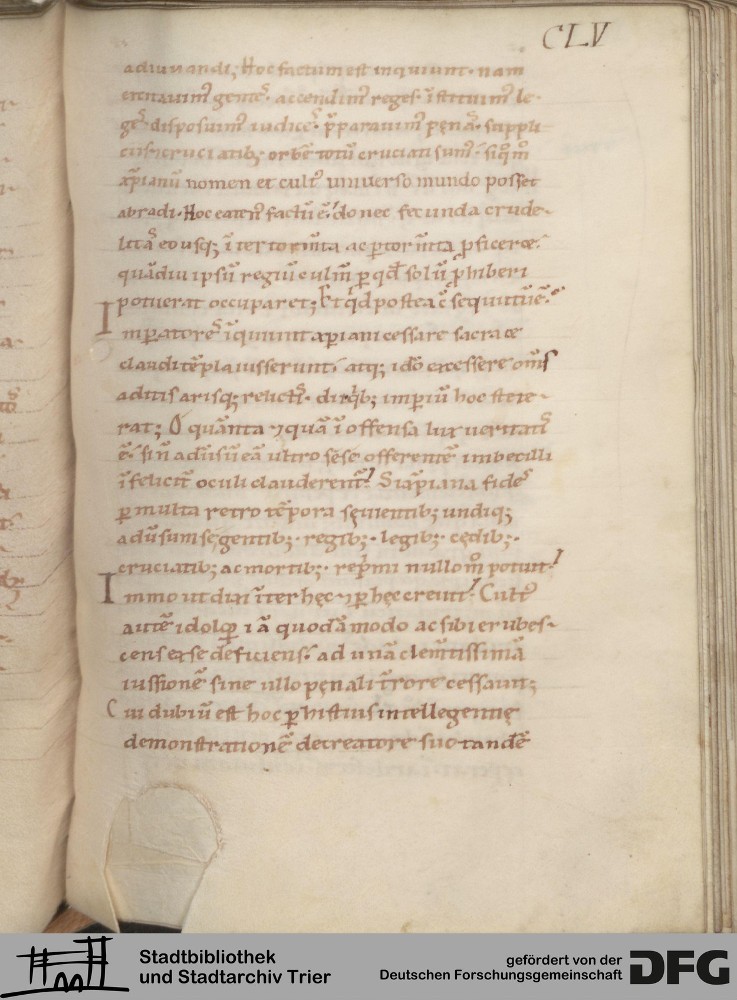 CLV
adiuuandi; Hoc factum est inquiunt· nam
excitauim᷒ gentes᷒· accendim᷒ reges· īstituim᷒ le-
ges᷒· disposuim᷒ iudices᷒· p̄parauim᷒ pęnas᷒· suppli
cruciatib; orbē totū cruciati sum᷒·
xp̄ianū nomen et cult᷒ uniuerso mundo posset
abradi· Hoc eaten᷒ factū ē! donec fecunda crude-
litas᷒ eousq; īter tormīta ac p̱ tormīta ꝓficeret·
quādiu ipsū regiū culm̄ p̱ qd̄ solū ꝓhiberi
potuerat occuparet; Et qd postea c̄sequutū ē·
Imp̱atores᷒ īquiunt xp̄iani cessare sacra et
claudi tēpla iusserunt· atq; idō excessere om̄s
aditis arisq; relictis᷒· di qib; imp̱iū hoc stete-
rat; O quānta ⁊ quā īoffensa lux ueritatis᷒
ē· si n̄ adūsū eā ultro sese offerentē imbecilli
īfelicit᷒ oculi clauderent᷒! Si xp̄iana fides᷒
p̱ multa retro tēpora sęuientib; undiq;
adūsum se gentib;· regib;· legib;· cędib;·
cruciatib; ac mortib;· rep̄mi nullo m̊ potuit!
Immo ut dixi īter hęc ⁊ p̱ hęc creuit! Cult᷒
autē idoloꝝ iā quodā modo ac sibi erubes-
cens et se deficiens᷒· ad unā clemtissimā
iussionē sine ullo pęnali t̄rore cessauit;
Cui dubiū est hoc p̱ histius intellegentię
demonstrationē de creatore suo tandē
Stadtbibliothek
und Stadtarchiv Trier
gefördert von der
Deutschen Forschungsgemeinschaft
DFG